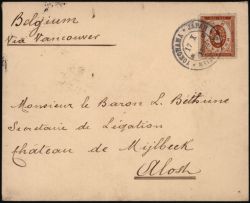 Belgium
Via Vancouver
YOKOHAMA
Monsieur le Baron L. Béthune
Secretaire de Légation
Chateau de Mijlbeck
Alost